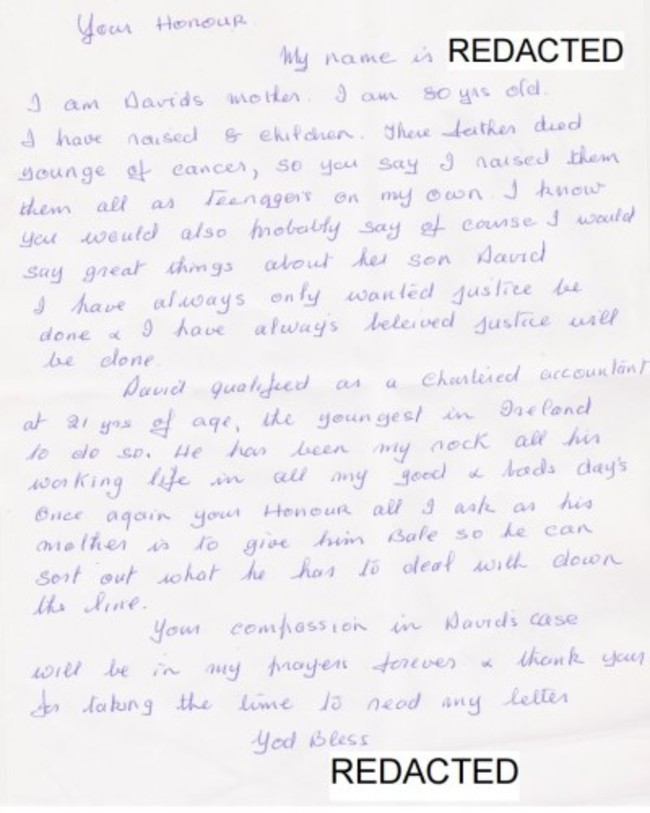 Your Honour
My name is REDACTED
I am Davids mother. I am 80 yrs old.
I have raised 8 children. There father died
younge of cancer, so you say I raised them
them all as Teenagers on my own. I know
you would also probably say of course I would
say great things about her son David
I have always only wanted justice be
done & I have always beleived justice will
be done.
David qualified as a Chartered accountant
at 21 yrs of age, the youngest in Ireland
to do so. He has been my rock all his
working life in all my good & bads day's
Once again your Honour all I ask as his
mother is to give him Bale so he can
sort out what he has to deal with down
the line.
Your compassion in David's case
will be in my prayers forever & thank your
for taking the time to read my letter
God Bless
REDACTED